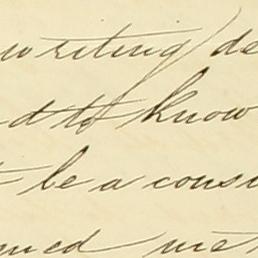 writing de
d to know
t be a consi
ned me